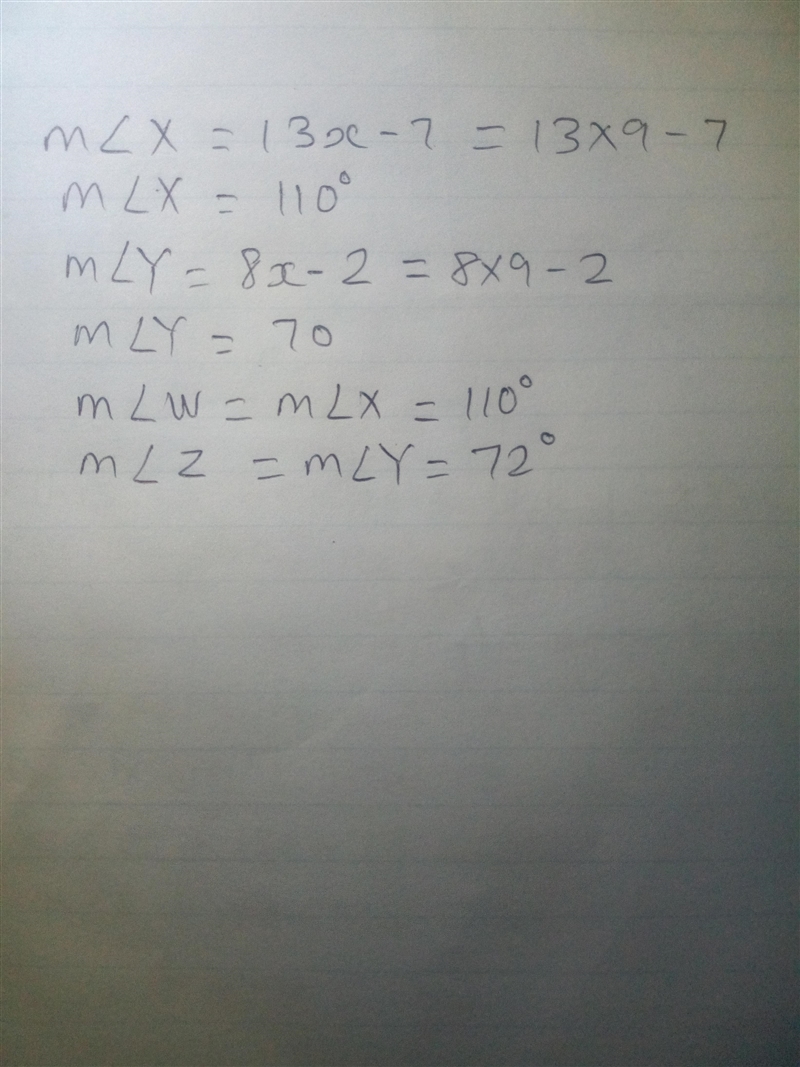 m∠X = 13x - 7 = 13×9 - 7
m∠X = 110°
m∠Y = 8x - 2 = 8×9 - 2
m∠Y = 70
m∠W = m∠X = 110°
m∠Z = m∠Y = 72°